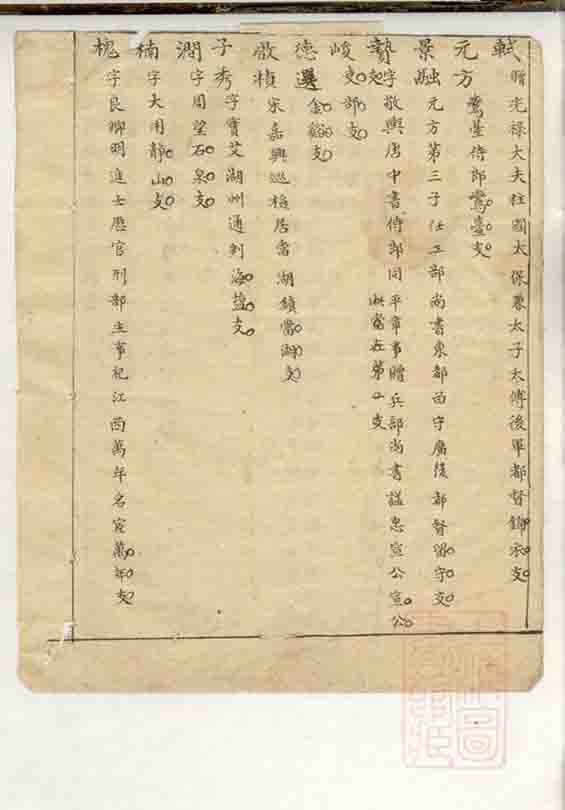 軾 贈光祿大夫柱國太保兼太子太傅後軍都督錦衣支
元方 鸞臺侍郎鸞臺支
景融 元方第三子仕工部尚書東都留守廣陵都督留守支
贄 字敬輿唐中書侍郎同平章事贈兵部尚書謚忠宣公宣公支 此當在第四支
峻支 郎支
德遷 金谿支
啟楨 宋嘉興巡檢居當湖鎮當湖支
子秀 字寶艾湖州通判海鹽支
潤 字用望石泉支
楠 字大用靜山支
槐 字良卿明進士歷官刑部主事祀江西萬年名宦萬年支